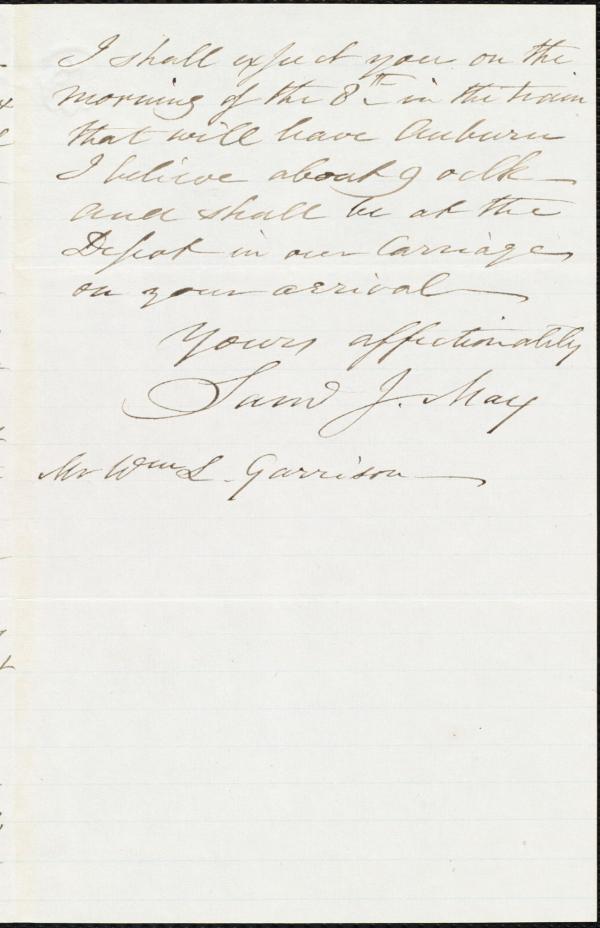 I shall expect you on the
morning of the 8th in the train
that will leave Auburn
I believe about 9 oclk
and shall be at the
Depot in our Carriage
on your arrival
Yours affectionately
Saml J. May
Mr Wm L. Garrison